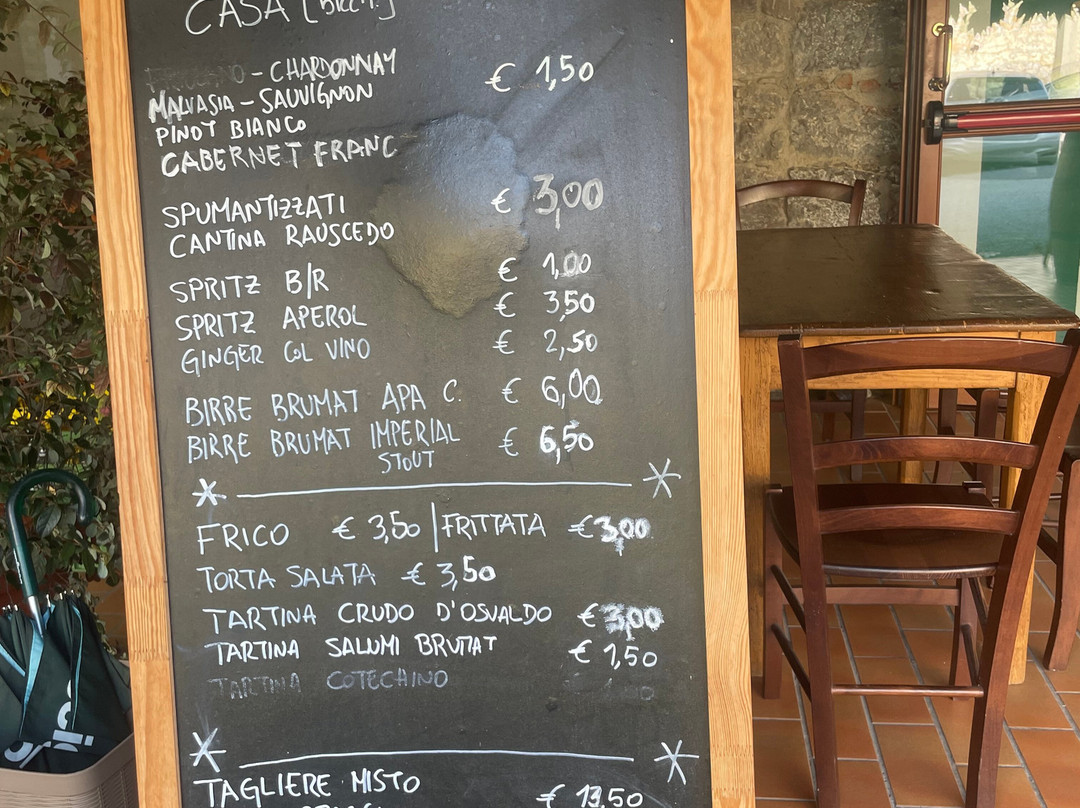 CASA [BICCH.]
- CHARDONNAY € 1,50
MALVASIA - SAUVIGNON
PINOT BIANCO
CABERNET FRANC
SPUMANTIZZATI € 3,00
CANTINA RAUSCEDO
SPRITZ B/R € 1,00
SPRITZ APEROL € 3,50
GINGER COL VINO € 2,50
BIRRE BRUMAT APA C. € 6,00
BIRRE BRUMAT IMPERIAL € 6,50
STOUT
FRICO € 3,50 | FRITTATA € 3,00
TORTA SALATA € 3,50
TARTINA CRUDO D'OSVALDO € 3,00
TARTINA SALUMI BRUMAT € 1,50
TARTINA COTECHINO
TAGLIERE MISTO € 13,50